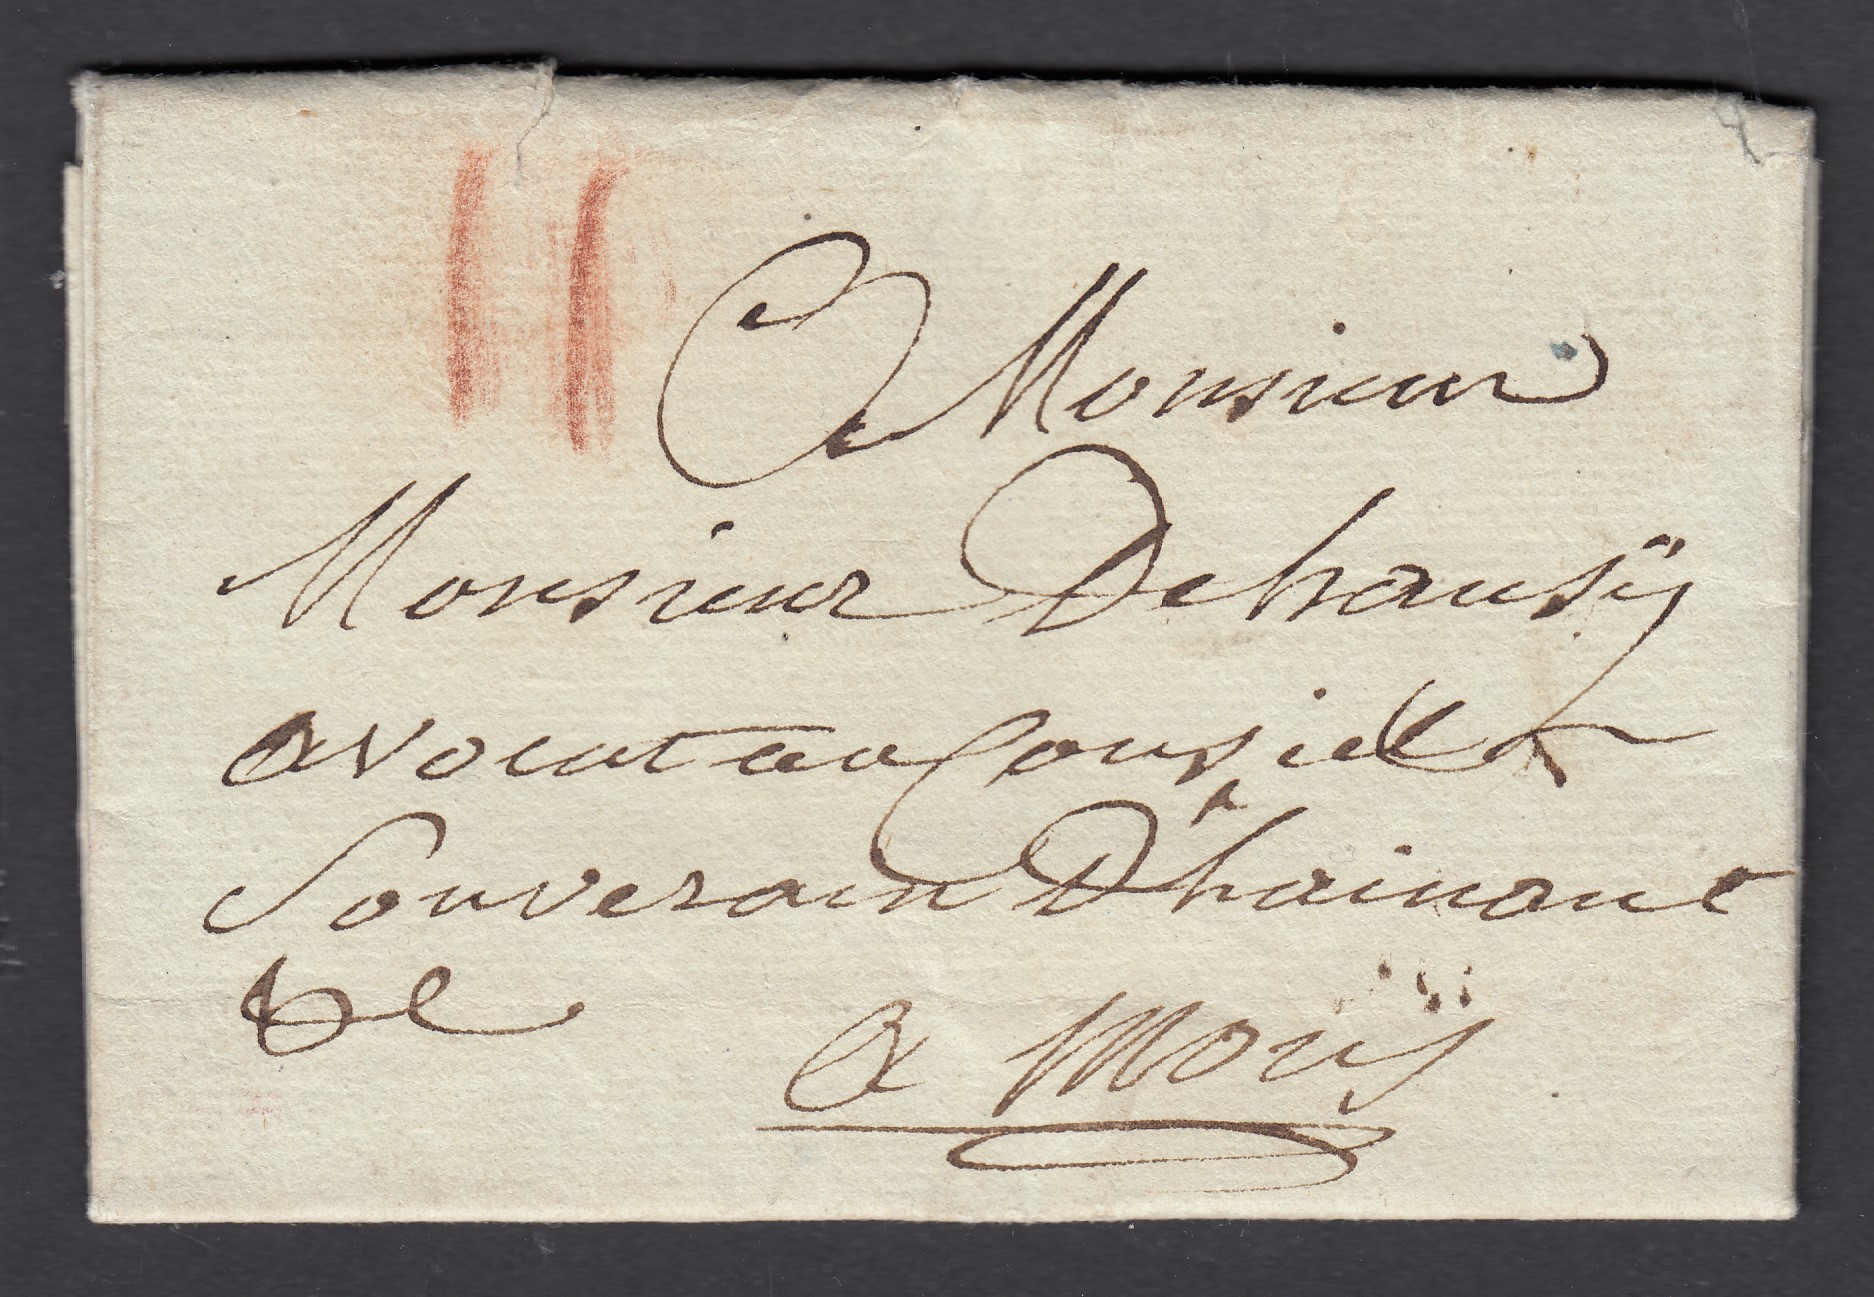 A Monsieur
Monsieur Dehausÿ
avocat au Consiel
Souverain D'hainaut
&c
a Mons